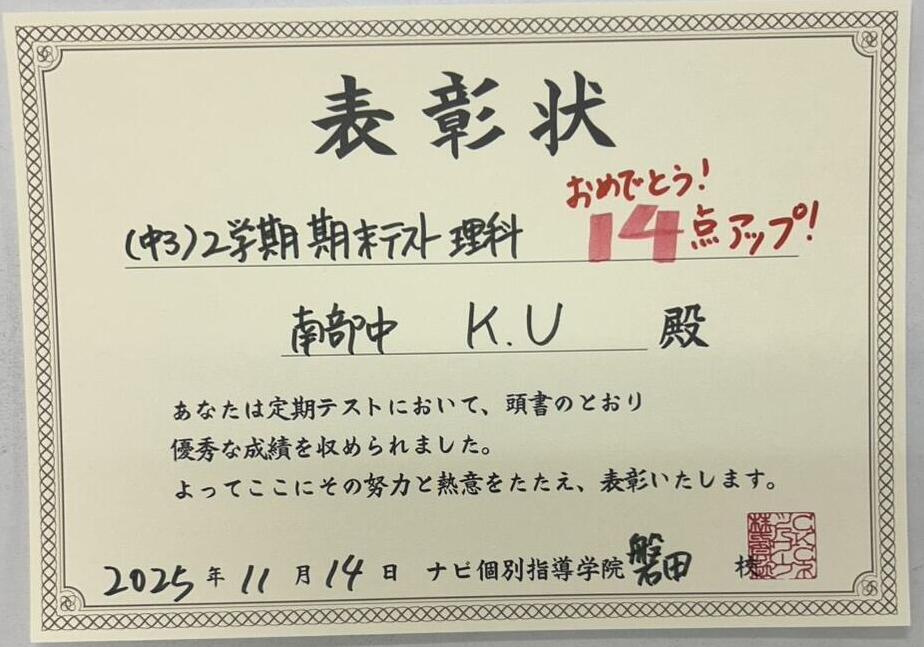 表彰状
おめでとう!
(中3)2学期期末テスト理科 14点アップ!
南部中 K.U 殿
あなたは定期テストにおいて、頭書のとおり
優秀な成績を収められました。
よってここにその努力と熱意をたたえ、表彰いたします。
2025年11月14日 ナビ個別指導学院 磐田 校